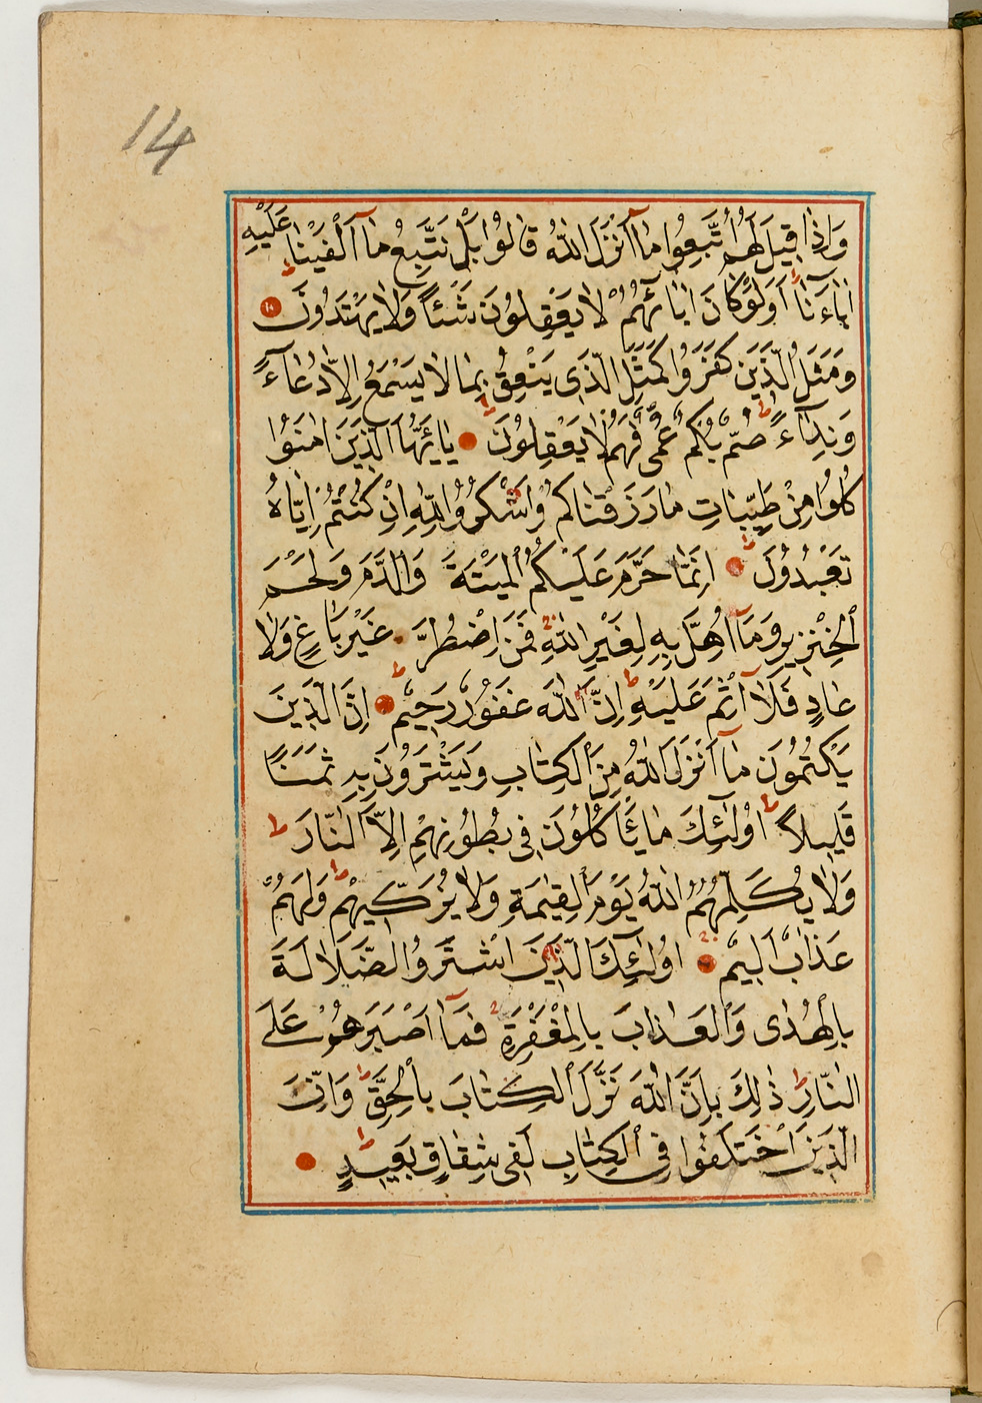 14
وَاِذَا قِيلَ لَهُمُ اتَّبِعُوا مَا اَنْزَلَ اللّٰهُ قَالُوا بَلْ نَتَّبِعُ مَا اَلْفَيْنَا عَلَيْهِ
اٰبَاءَنَا اَوَلَوْ كَانَ اٰبَائُهُمْ لَا يَعْقِلُونَ شَئًا وَلَا يَهْتَدُونَ
وَمَثَلُ الَّذِينَ كَفَرُوا كَمَثَلِ الَّذِى يَنْعِقُ بِمَا لَا يَسْمَعُ اِلَّا دُعَاءً
وَنِدَاءً صُمٌّ بُكْمٌ عُمْىٌ فَهُمْ لَا يَعْقِلُونَ يَا اَيُّهَا الَّذِينَ اٰمَنُوا
كُلُوا مِنْ طَيِّبَاتِ مَا رَزَقْنَاكُمْ وَاشْكُرُوا لِلّٰهِ اِنْ كُنْتُمْ اِيَّاهُ
تَعْبُدُونَ اِنَّمَا حَرَّمَ عَلَيْكُمُ الْمَيْتَةَ وَالدَّمَ وَلَحْمَ
الْخِنْزِيرِ وَمَا اُهِلَّ بِهِ لِغَيْرِ اللّٰهِ فَمَنِ اضْطُرَّ غَيْرَ بَاغٍ وَلَا
عَادٍ فَلَا اِثْمَ عَلَيْهِ اِنَّ اللّٰهَ غَفُورٌ رَحِيمٌ اِنَّ الَّذِينَ
يَكْتُمُونَ مَا اَنْزَلَ اللّٰهُ مِنَ الْكِتَابِ وَيَشْتَرُونَ بِهِ ثَمَنًا
قَلِيلًا اُولٰئِكَ مَا يَأْكُلُونَ فِى بُطُونِهِمْ اِلَّا النَّارَ
وَلَا يُكَلِّمُهُمُ اللّٰهُ يَوْمَ الْقِيٰمَةِ وَلَا يُزَكِّيهِمْ وَلَهُمْ
عَذَابٌ اَلِيمٌ اُولٰئِكَ الَّذِينَ اشْتَرَوُا الضَّلَالَةَ
بِالْهُدٰى وَالْعَذَابَ بِالْمَغْفِرَةِ فَمَا اَصْبَرَهُمْ عَلَى
النَّارِ ذٰلِكَ بِاَنَّ اللّٰهَ نَزَّلَ الْكِتَابَ بِالْحَقِّ وَاِنَّ
الَّذِينَ اخْتَلَفُوا فِى الْكِتَابِ لَفِى شِقَاقٍ بَعِيدٍ